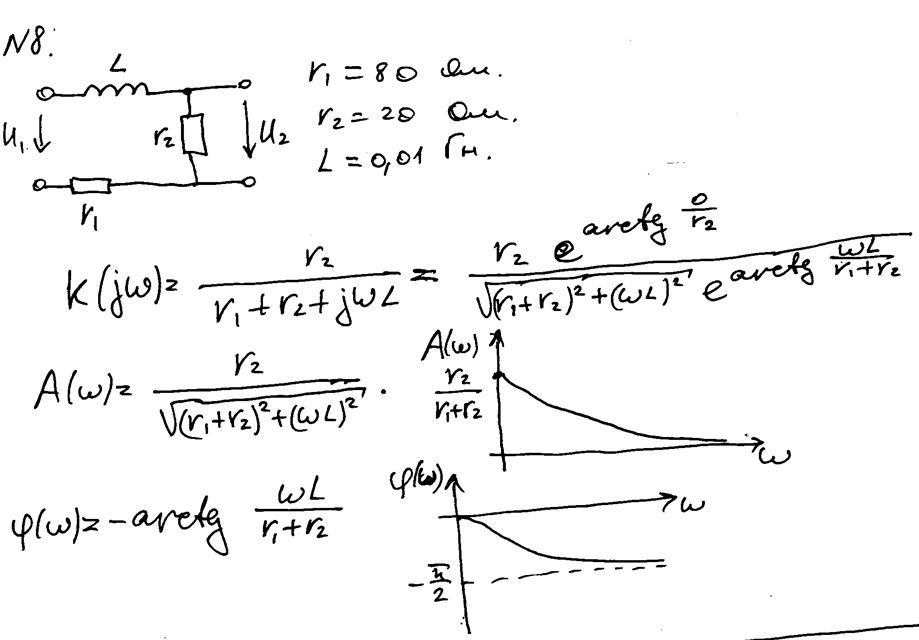 N8:
L
r₁ = 80 Ом.
r₂ = 20 Ом.
L = 0,01 Гн.
U₁ r₂ U₂
r₁
K(jω) = r₂ / (r₁ + r₂ + jωL) = r₂ e^(arctg 0/r₂) / (√((r₁+r₂)² + (ωL)²) e^(arctg ωL/(r₁+r₂)))
A(ω) = r₂ / √((r₁+r₂)² + (ωL)²) .
A(ω)
r₂ / (r₁+r₂)
ω
φ(ω) = - arctg ωL / (r₁+r₂)
φ(ω)
ω
-π/2